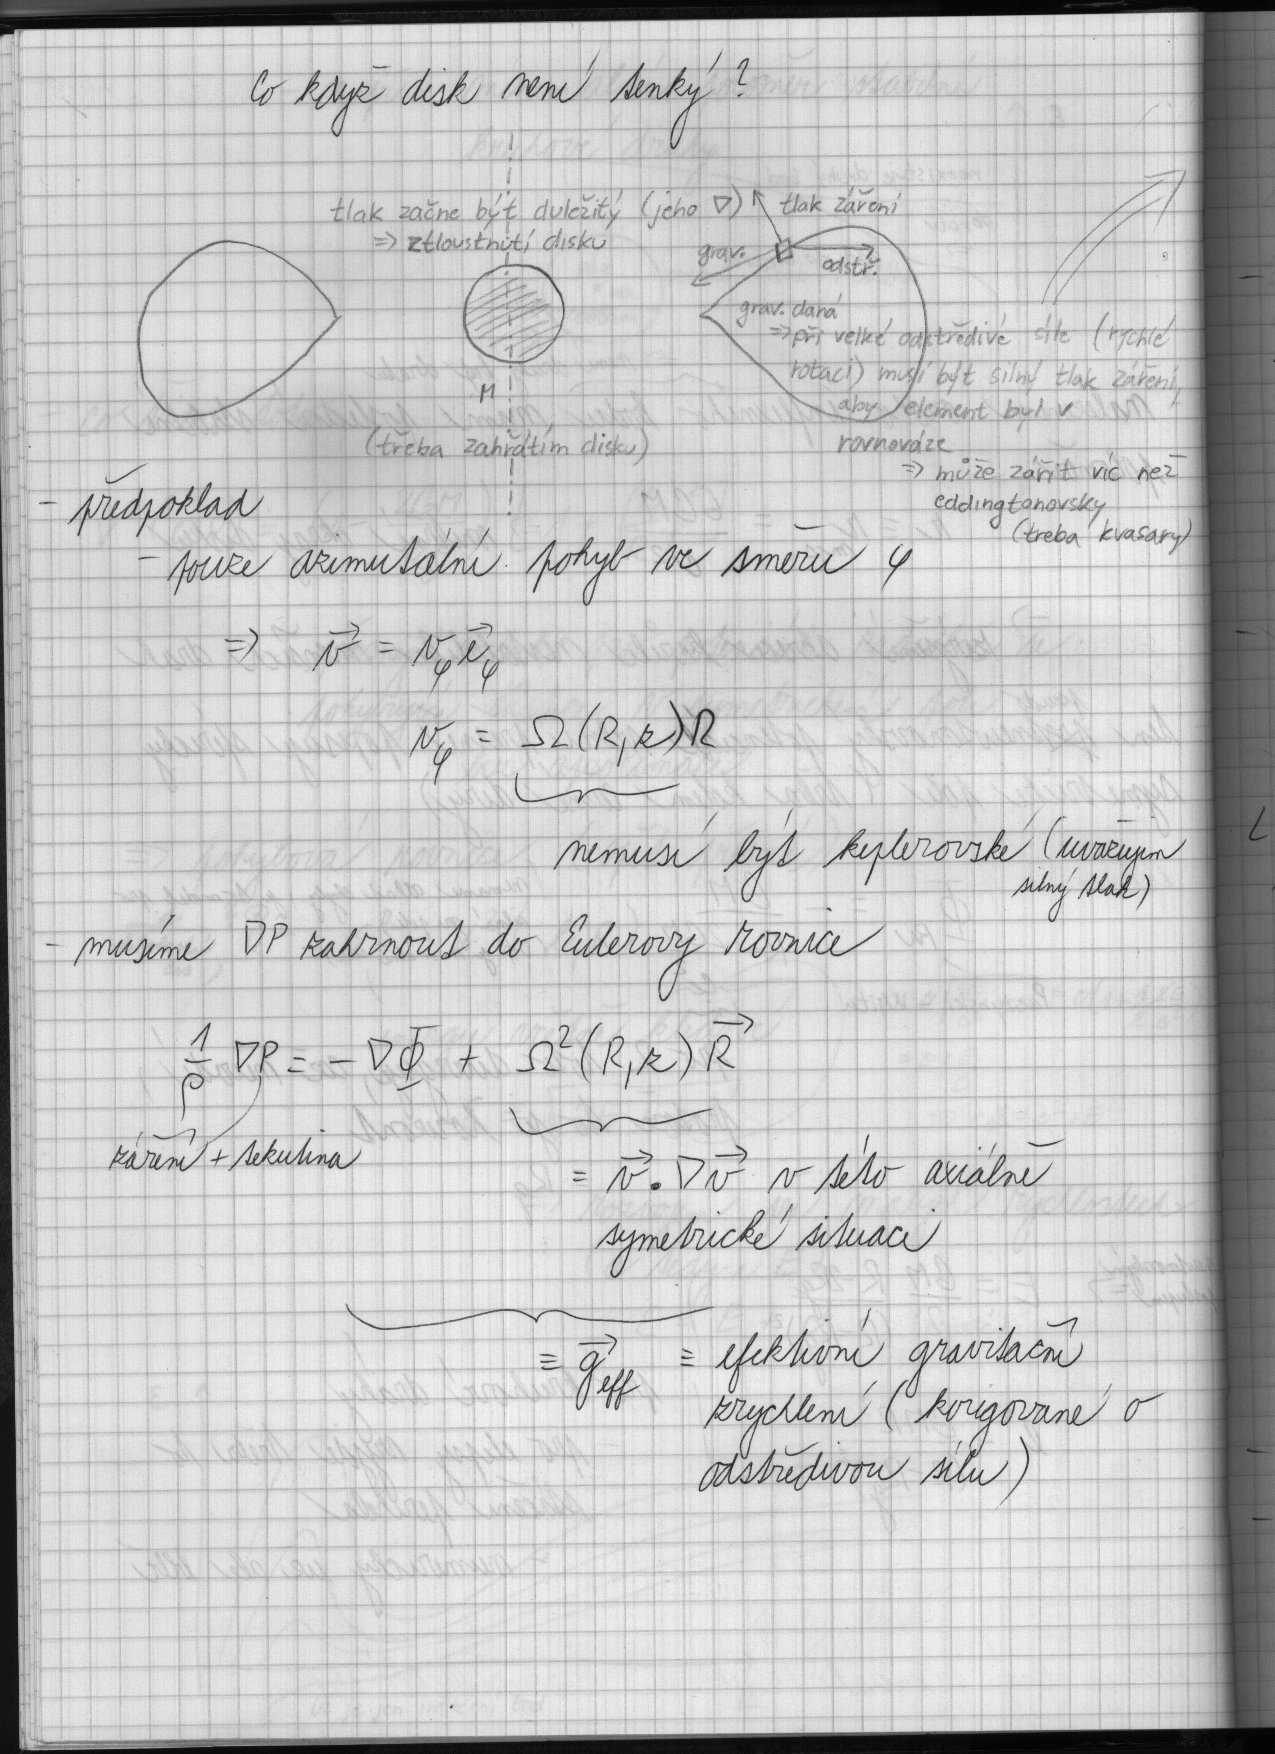 Co když disk není tenký?
tlak začne být duležitý (jeho ∇)
⇒ ztloustnutí disku
tlak záření
grav.
odstř.
M
(třeba zahřátím disku)
grav. daná
⇒ při velké odstředivé síle (rychlé
rotaci) musí být silný tlak záření,
aby element byl v
rovnováze
⇒ může zářit víc než
eddingtonovsky
(treba kvasary)
- předpoklad
- pouze azimutální pohyb ve směru φ
⇒ v⃗ = v_φ e⃗_φ
v_φ = Ω(R,z)R
nemusí být keplerovské (uvažujem
silný tlak)
- musíme ∇P zahrnout do Eulerovy rovnice
1/ρ ∇P = - ∇Φ + Ω²(R,z) R⃗
záření + tekutina
= v⃗ . ∇v⃗ v této axiálně
symetrické situaci
≡ g⃗_eff ≡ efektivní gravitační
zrychlení (korigované o
odstředivou sílu)